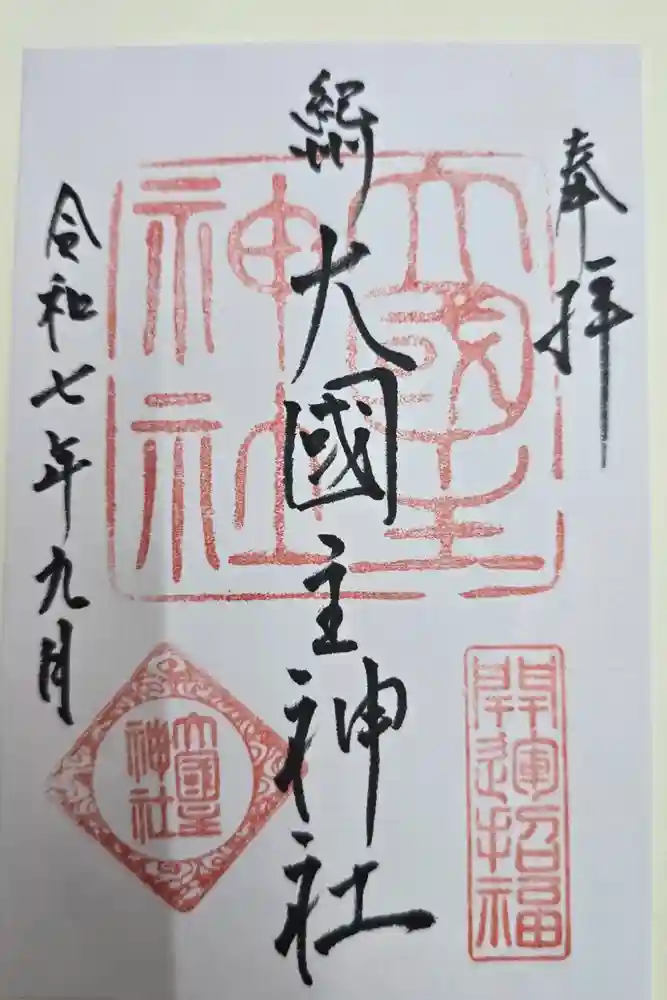 奉拝
紀州
大國主神社
令和七年九月
大國主神社
開運招福
大國主神社